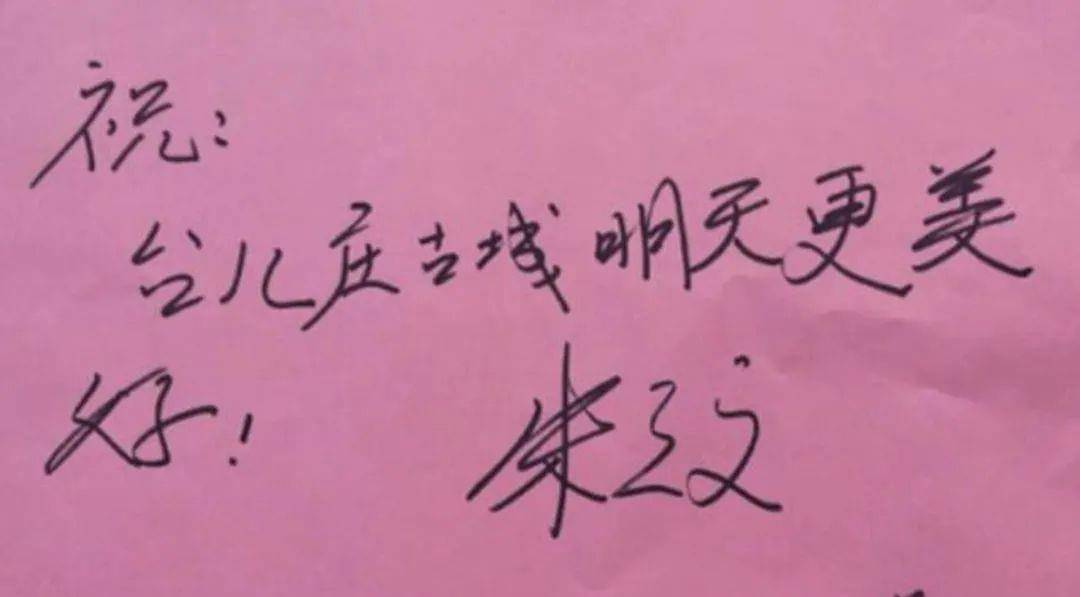 祝:
台儿庄古城明天更美
好! 朱立文